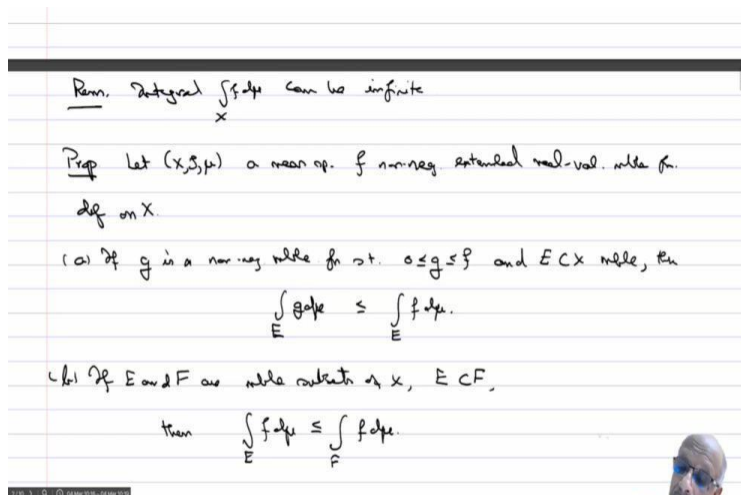 Rem. Integral ∫_X f dμ can be infinite
Prop Let (X, S, μ) a meas sp. f non-neg. extended real-val. mble fn.
def on X.
(a) If g is a non-neg mble fn s.t. 0 ≤ g ≤ f and E ⊂ X mble, then
∫_E g dμ ≤ ∫_E f dμ.
(b) If E and F are mble subsets of X, E ⊂ F,
then ∫_E f dμ ≤ ∫_F f dμ.